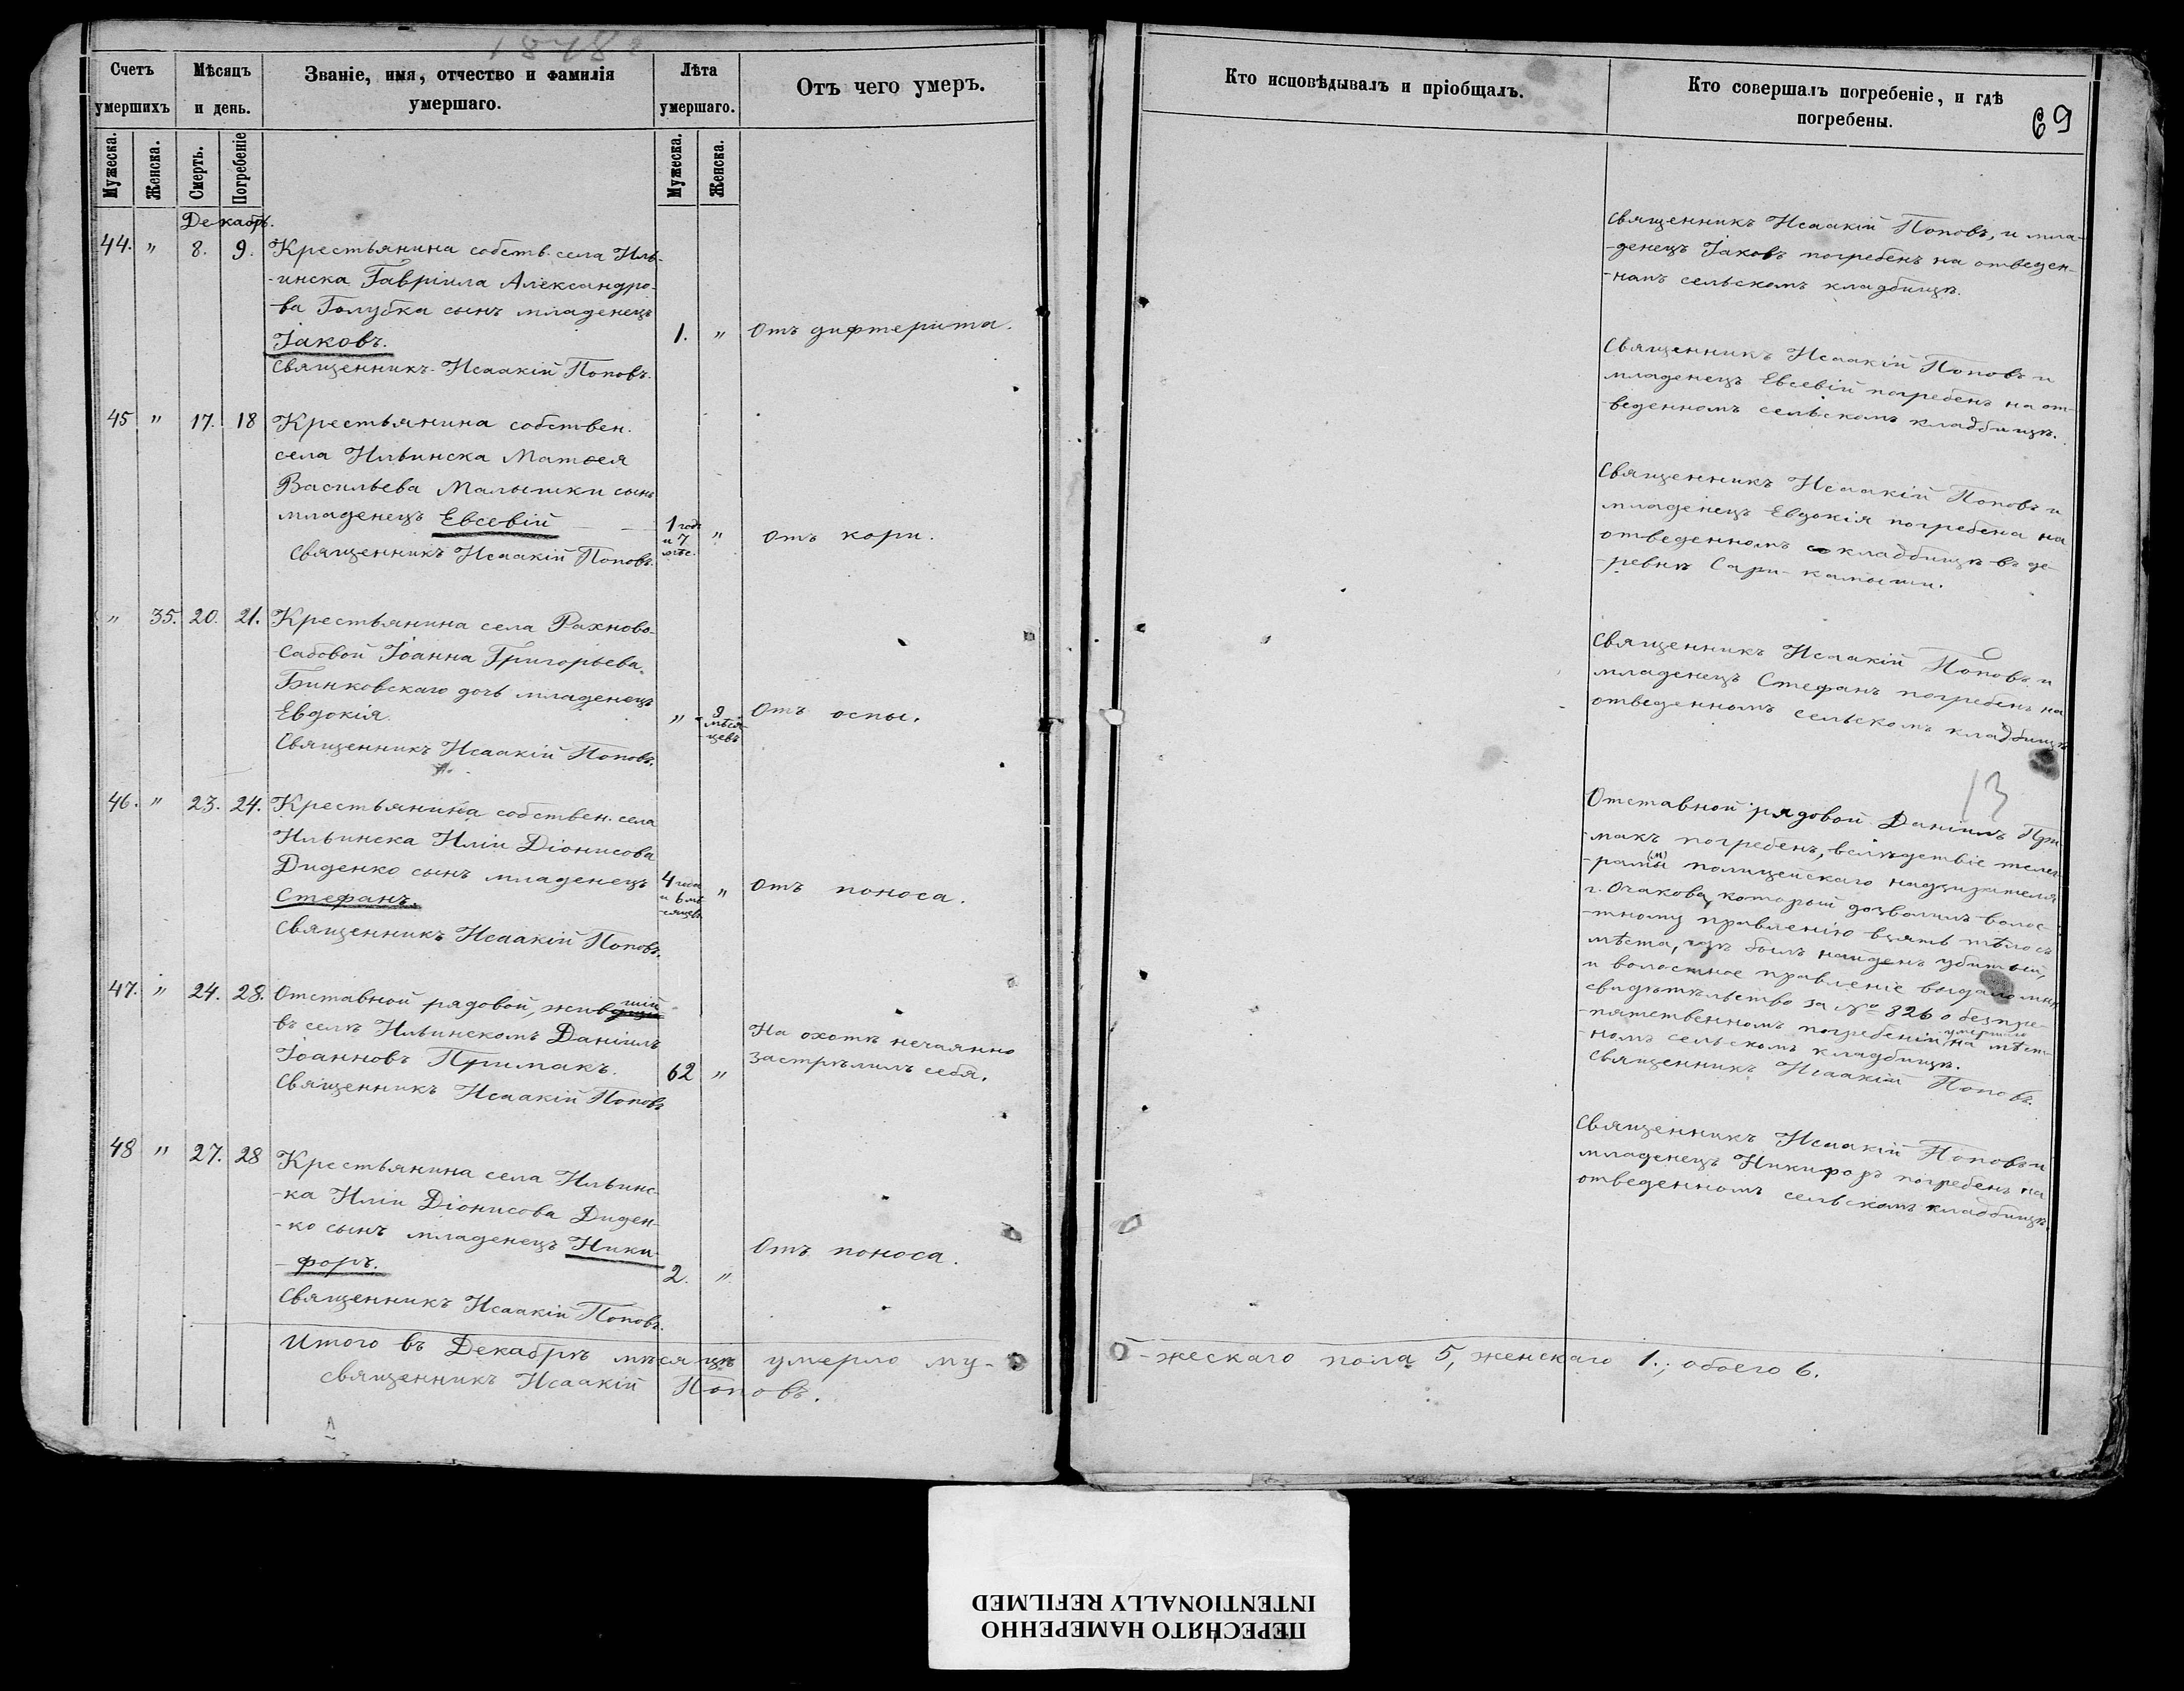 1878
Счетъ умершихъ
Мѣсяцъ и день.
Званіе, имя, отчество и фамилія умершаго.
Лѣта умершаго.
Отъ чего умеръ.
Мужеска. Женска. Смерть. Погребеніе Мужеска. Женска.
Декабрь.
44. " 8. 9. Крестьянина собств. села Иль-
-инска Гавріила Александро-
-ва Голубка сынъ младенецъ
Іаковъ. 1. " Отъ дифтерита.
Священникъ Исаакій Поповъ.
45 " 17. 18 Крестьянина собствен.
села Ильинска Матѳея
Васильева Малышки сынъ
младенецъ Евсевій 1 годъ и 7 мѣс. " Отъ кори.
Священникъ Исаакій Поповъ.
" 35. 20. 21. Крестьянина села Рахново-
Сабовой Іоанна Григорьева
Бинковскаго дочь младенецъ
Евдокія. " 9 мѣся-цевъ Отъ оспы.
Священникъ Исаакій Поповъ.
46. " 23. 24. Крестьянина собствен. села
Ильинска Иліи Діонисова
Диденко сынъ младенецъ
Стефанъ. 4 года и 6 мѣ-сяцевъ " Отъ поноса.
Священникъ Исаакій Поповъ.
47. " 24. 28. Отставной рядовой, жившій
въ селѣ Ильинскомъ Даніилъ
Іоанновъ Примакъ. 62 " На охотѣ нечаянно
застрѣлилъ себя.
Священникъ Исаакій Поповъ
48 " 27. 28 Крестьянина села Ильинс-
-ка Иліи Діонисова Диден-
-ко сынъ младенецъ Ники-
-форъ. 2. " Отъ поноса.
Священникъ Исаакій Поповъ.
Итого въ Декабрѣ мѣсяцѣ умерло му-
Священникъ Исаакій Поповъ.
Кто исповѣдывалъ и пріобщалъ.
Кто совершалъ погребеніе, и гдѣ погребены.
69
Священникъ Исаакій Поповъ, и мла-
-денецъ Іаковъ погребенъ на отведен-
-номъ сельскомъ кладбищѣ.
Священникъ Исаакій Поповъ и
младенецъ Евсевій погребенъ на от-
-веденномъ сельскомъ кладбищѣ.
Священникъ Исаакій Поповъ и
младенецъ Евдокія погребена на
отведенномъ кладбищѣ въ де-
-ревнѣ Сари-камыши.
Священникъ Исаакій Поповъ и
младенецъ Стефанъ погребенъ на
отведенномъ сельскомъ кладбищѣ
13
Отставной рядовой Даніилъ При-
-макъ погребенъ, вслѣдствіе телег-
-раммы полицейскаго надзирателя
г. Очакова, который дозволилъ волос-
-тному правленію взять тѣло съ
мѣста, гдѣ былъ найденъ убитый,
и волостное правленіе выдало мнѣ
свидѣтельство за № 826 о безпре-
-пятственномъ погребеніи умершаго на мѣст-
-номъ сельскомъ кладбищѣ.
Священникъ Исаакій Поповъ.
Священникъ Исаакій Поповъ и
младенецъ Никифоръ погребенъ на
отведенномъ сельскомъ кладбищѣ.
-жескаго пола 5, женскаго 1.; обоего 6.
ПЕРЕСНЯТО НАМЕРЕННО
INTENTIONALLY REFILMED